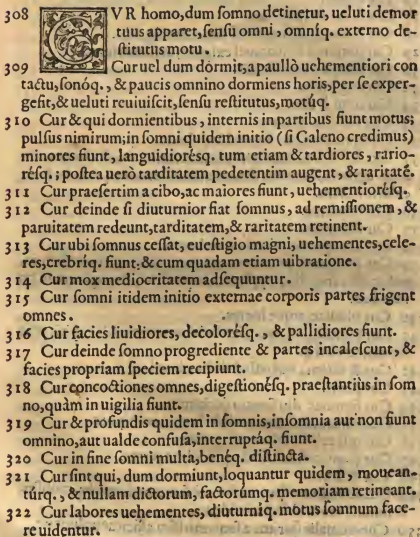 308 CVR homo, dum somno detinetur, ueluti demor
tuus apparet, sensu omni, omniq. externo de-
stitutus motu.
309 Cur uel dum dormit, a paullò uehementiori con
tactu, sonóq., & paucis omnino dormiens horis, per se exper-
gesit, & ueluti reuiuiscit, sensu restitutus, motúq.
310 Cur & qui dormientibus, internis in partibus fiunt motus;
pulsus nimirum; in somni quidem initio (si Galeno credimus)
minores fiunt, languidiorésq. tum etiam & tardiores, rario-
résq.; postea uerò tarditatem pedetentim augent, & raritatē.
311 Cur praesertim a cibo, ac maiores fiunt, uehementiorésq.
312 Cur deinde si diuturnior fiat somnus, ad remissionem, &
paruitatem redeunt, tarditatem, & raritatem retinent.
313 Cur ubi somnus cessat, euestigio magni, uehementes, cele-
res, crebríq. fiunt, & cum quadam etiam uibratione.
314 Cur mox mediocritatem adsequuntur.
315 Cur somni itidem initio externae corporis partes frigent
omnes.
316 Cur facies liuidiores, decolorésq., & pallidiores fiunt.
317 Cur deinde somno progrediente & partes incalescunt, &
facies propriam speciem recipiunt.
318 Cur concoctiones omnes, digestionésq. praestantius in som
no, quàm in uigilia fiunt.
319 Cur & profundis quidem in somnis, insomnia aut non fiunt
omnino, aut ualde confusa, interruptáq. fiunt.
320 Cur in fine somni multa, benéq. distincta.
321 Cur sint qui, dum dormiunt, loquantur quidem, mouean-
túrq., & nullam dictorum, factorúmq. memoriam retineant.
322 Cur labores uehementes, diuturníq. motus somnum face-
re uidentur.